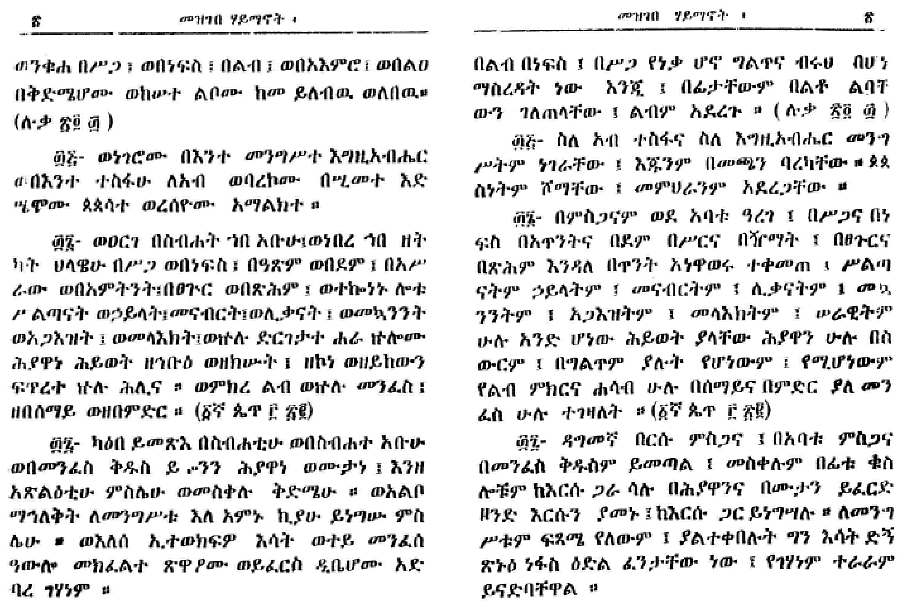 ፳ መዝገበ ሃይማኖት ፡
ወንቁሐ በሥጋ ፤ ወበነፍስ ፤ በልብ ፤ ወበአእምሮ ፤ ወበልዐ
በቅድሜሆሙ ወከሠተ ልቦሙ ከመ ይለብዉ ወለበዉ።
(ሉቃ ፳፬ ፴ )
፴፭- ወነገሮሙ በእንተ መንግሥተ እግዚአብሔር
ወበእንተ ተስፋሁ ለአብ ወባረኮሙ በሢመተ እድ
ሤሞሙ ጳጳሳተ ወረሰዮሙ አማልክተ ።
፴፮- ወዐርገ በስብሐት ኀበ አቡሁ፤ወነበረ ኀበ ዘት
ካት ህላዌሁ በሥጋ ወበነፍስ ፤ በዓጽም ወበደም ፤ በአሥ
ራው ወበአምትንት፤በፀጕር ወበጽሕም ፤ ወተኰነኑ ሎቱ
ሥልጣናት ወኃይላት፤መናብርት፤ወሊቃናት ፤ ወመኳንንት
ወአጋእዝት ፤ ወመላእክት፤ወኵሉ ድርገታተ ሐራ ኵሎሙ
ሕያዋነ ሕይወት ዘኅቡእ ወዘክሡት ፤ ዘኮነ ወዘይከውን
ፍጥረተ ኵሉ ሕሊና ። ወምክረ ልብ ወኵሉ መንፈስ ፤
ዘበሰማይ ወዘበምድር ። (፩ኛ ጴጥ ፫ ፳፪)
፴፯- ካዕበ ይመጽእ በስብሐቲሁ ወበስብሐተ አቡሁ
ወበመንፈስ ቅዱስ ይኴንን ሕያዋነ ወሙታነ ፤ እንዘ
አጽልዕቲሁ ምስሌሁ ወመስቀሉ ቅድሜሁ ። ወአልቦ
ማኅለቅት ለመንግሥቱ እለ አምኑ ኪያሁ ይነግሡ ምስ
ሌሁ ። ወእለሰ ኢተወክፍዎ እሳት ወተይ መንፈሰ
ዓውሎ መክፈልተ ጽዋዖሙ ወይፈርስ ዲቤሆሙ አድ
ባረ ገሃነም ።
መዝገበ ሃይማኖት ፡
በልብ በነፍስ ፤ በሥጋ የነቃ ሆኖ ግልጥና ብሩህ በሆነ
ማስረዳት ነው እንጂ ፤ በፊታቸውም በልቶ ልባቸ
ውን ገለጠላቸው ፤ ልብም አደረጉ ። ( ሉቃ ፳፬ ፴ )
፴፭- ስለ አብ ተስፋና ስለ እግዚአብሔር መንግ
ሥትም ነገራቸው ፤ እጁንም በመጫን ባረካቸው ። ጳጳ
ስነትም ሾማቸው ፤ መምህራንም አደረጋቸው ።
፴፮- በምስጋናም ወደ አባቱ ዓረገ ፤ በሥጋና በነ
ፍስ በአጥንትና በደም በሥርና በዥማት ፤ በፀጉርና
በጽሕም እንዳለ በጥንት አነዋወሩ ተቀመጠ ፤ ሥልጣ
ናትም ኃይላትም ፤ መናብርትም ፤ ሊቃናትም ፤ መኳ
ንንትም ፤ አጋእዝትም ፤ መላእክትም ፤ ሠራዊትም
ሁሉ አንድ ሆነው ሕይወት ያላቸው ሕያዋን ሁሉ በስ
ውርም ፤ በግልጥም ያሉት የሆነውም ፤ የሚሆነውም
የልብ ምክርና ሐሳብ ሁሉ በሰማይና በምድር ያለ መን
ፈስ ሁሉ ተገዛለት ። (፩ኛ ጴጥ ፫ ፳፪)
፴፯- ዳግመኛ በርሱ ምስጋና ፤ በአባቱ ምስጋና
በመንፈስ ቅዱስም ይመጣል ፤ መስቀሉም በፊቱ ቁስ
ሎቹም ከእርሱ ጋራ ሳሉ በሕያዋንና በሙታን ይፈርድ
ዘንድ እርሱን ያመኑ ፤ ከእርሱ ጋር ይነግሣሉ ። ለመንግ
ሥቱም ፍጻሜ የለውም ፤ ያልተቀበሉት ግን እሳት ድኝ
ጽኑዕ ነፋስ ዕድል ፈንታቸው ነው ፤ የገሃነም ተራራም
ይናድባቸዋል ።